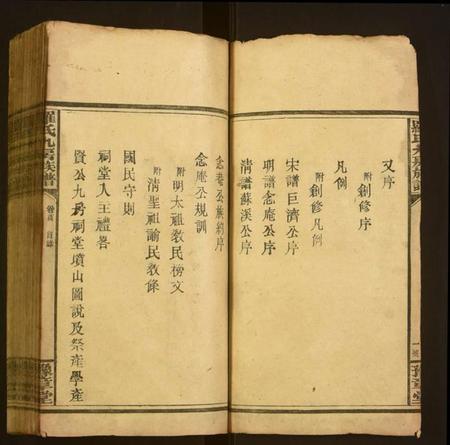 又序
附創修序
凡例
附創修凡例
宋譜巨濟公序
明譜念庵公序
清譜蘇溪公序
念庵公族約序
念庵公規訓
附明太祖敎民榜文
附清聖祖諭民敎條
國民守則
祠堂人主禮畧
賢公九房祠堂墳山圖說及祭產學產
羅氏九房族譜
卷首 目錄
豫章堂
羅氏九房族譜
一
豫章堂